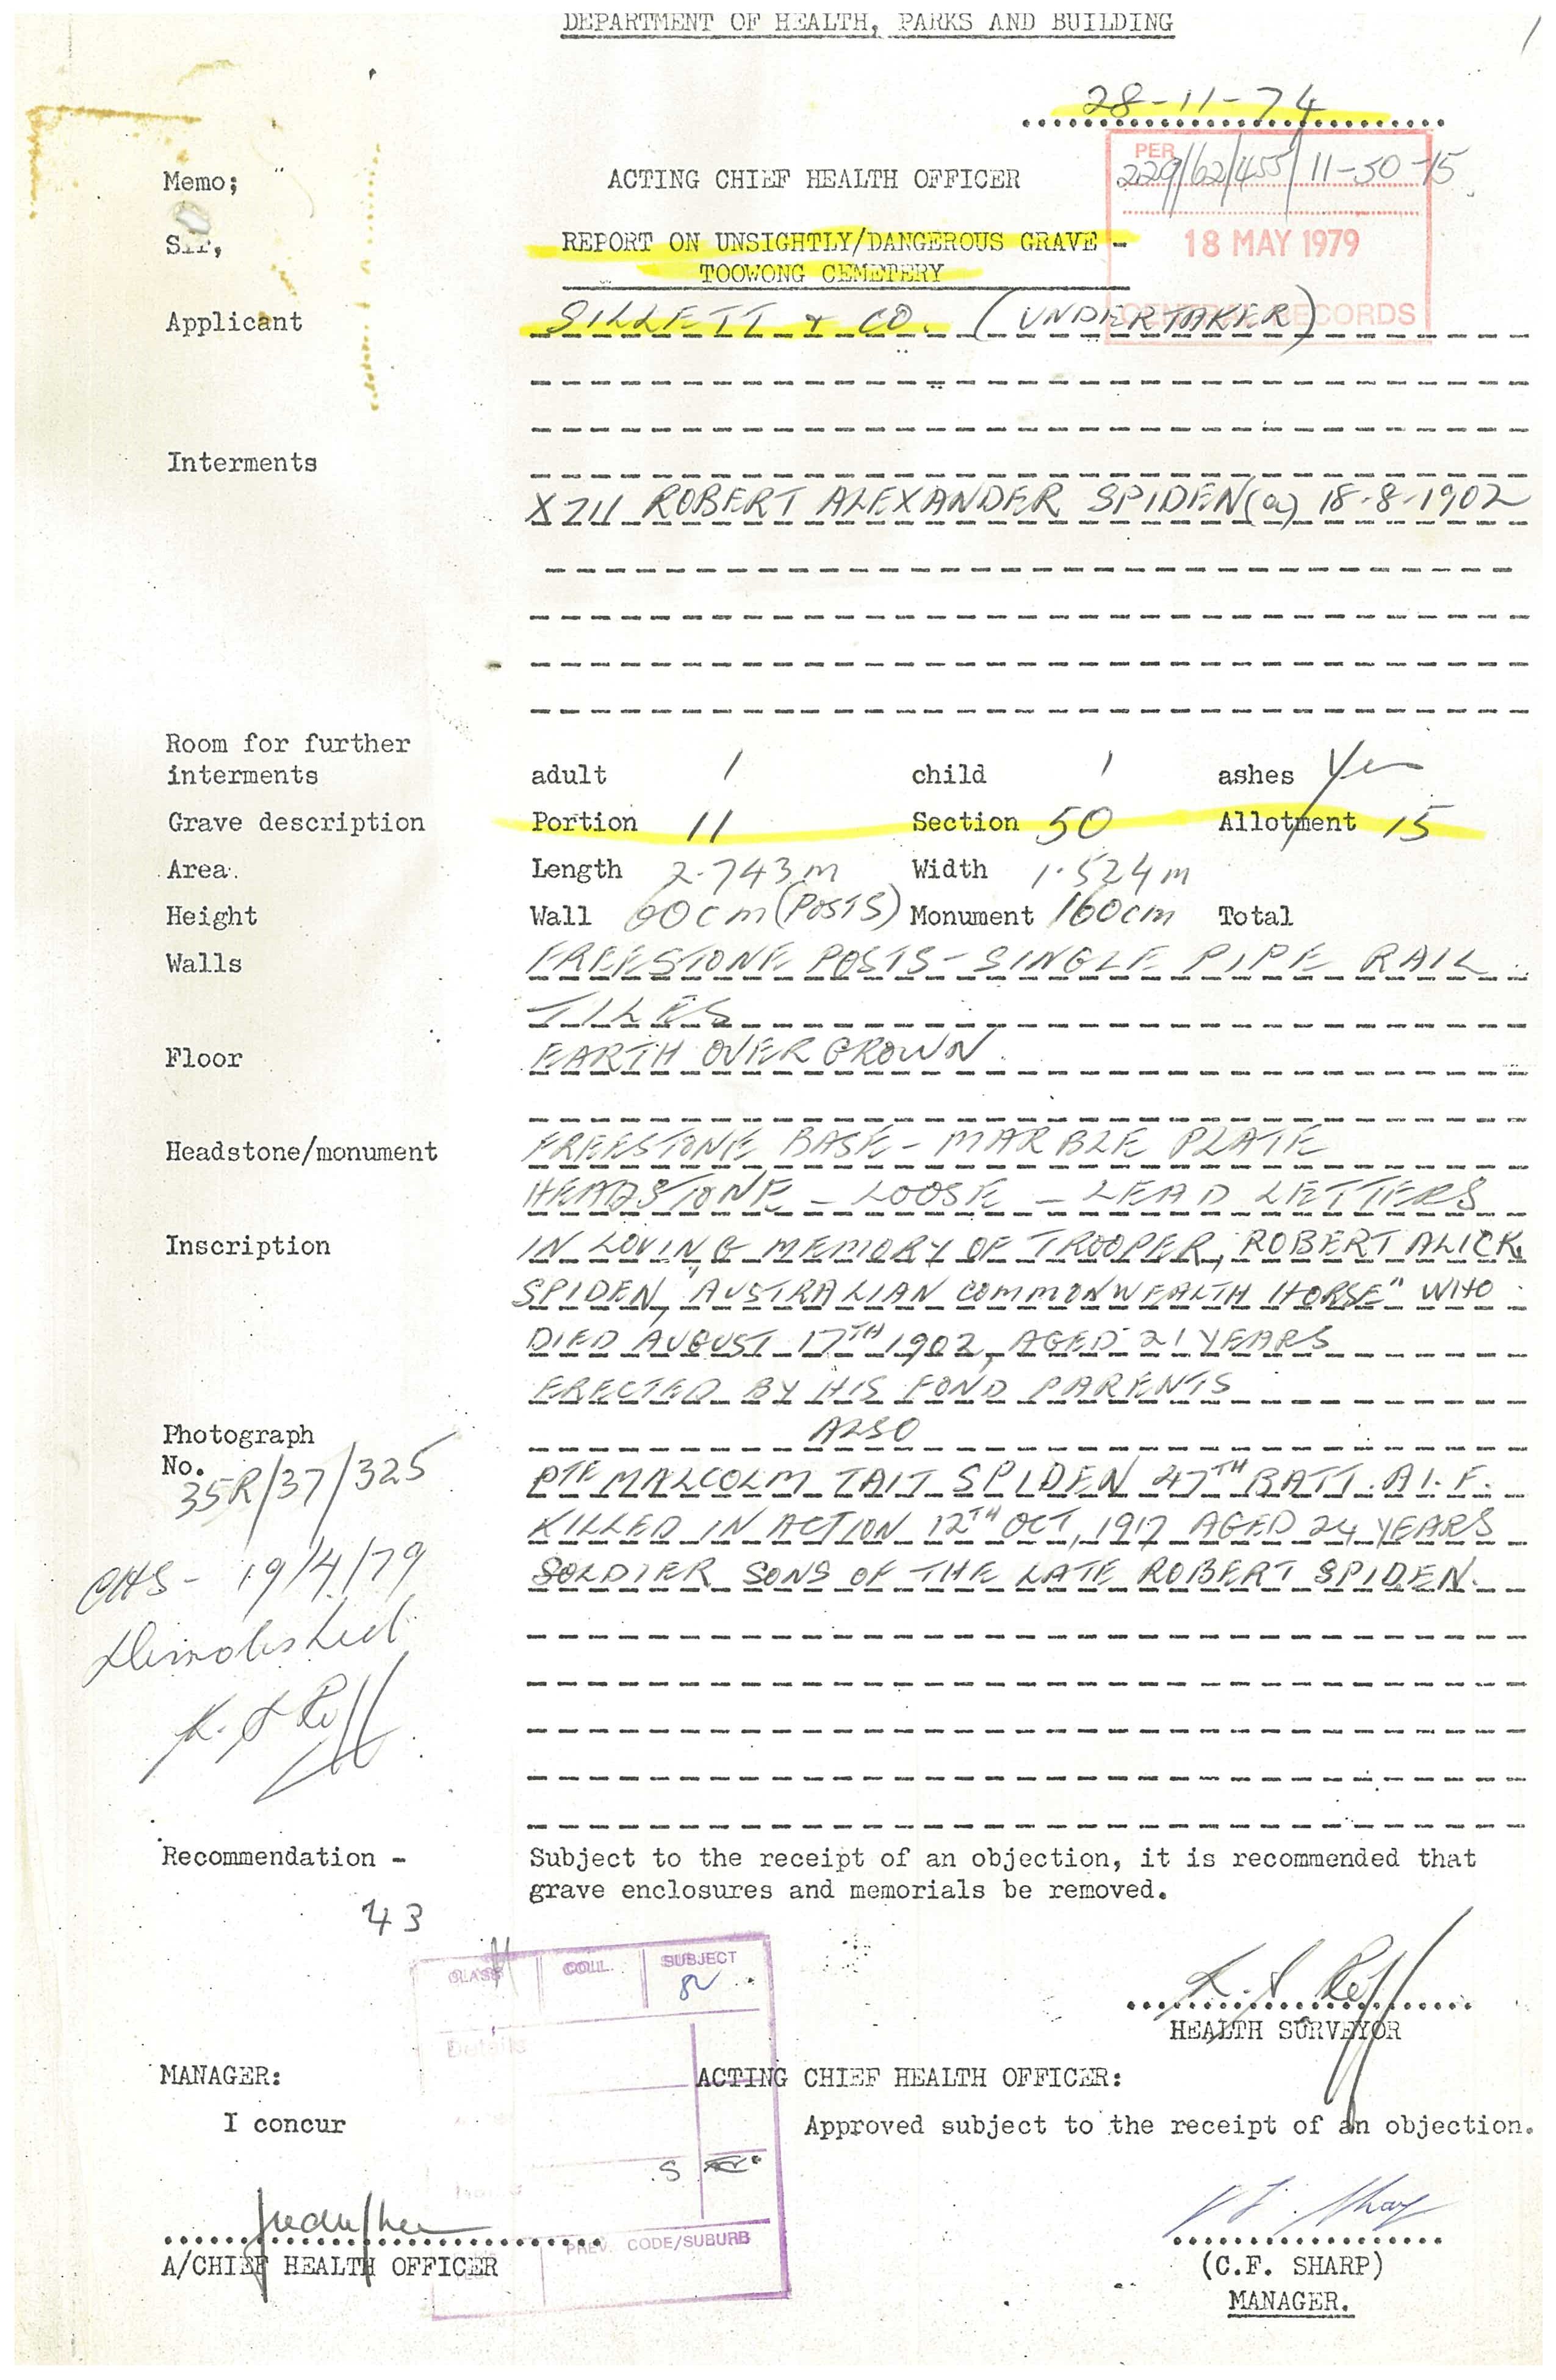 DEPARTMENT OF HEALTH, PARKS AND BUILDING
28-11-74
PER
229/62/455/11-50-15
18 MAY 1979
CENTRAL RECORDS
Memo;
ACTING CHIEF HEALTH OFFICER
Sir,
REPORT ON UNSIGHTLY/DANGEROUS GRAVE -
TOOWONG CEMETERY
Applicant
SILLETT & CO. (UNDERTAKER)
Interments
X211 ROBERT ALEXANDER SPIDEN (a) 18-8-1902
Room for further
interments adult 1 child 1 ashes Yes
Grave description Portion 11 Section 50 Allotment 15
Area Length 2.743m Width 1.524m
Height Wall 60cm (POSTS) Monument 160cm Total
Walls FREESTONE POSTS - SINGLE PIPE RAIL
TILES
Floor EARTH OVERGROWN
Headstone/monument FREESTONE BASE - MARBLE PLATE
HEADSTONE - LOOSE - LEAD LETTERS
Inscription IN LOVING MEMORY OF TROOPER, ROBERT ALICK
SPIDEN, "AUSTRALIAN COMMONWEALTH HORSE" WHO
DIED AUGUST 17TH 1902, AGED 21 YEARS
ERECTED BY HIS FOND PARENTS
ALSO
Photograph
No. 35R/37/325
PTE MALCOLM TAIT SPIDEN 47TH BATT. A.I.F.
KILLED IN ACTION 12TH OCT, 1917 AGED 24 YEARS
SOLDIER SONS OF THE LATE ROBERT SPIDEN.
CHS - 19/4/79
Demolished
Recommendation -
Subject to the receipt of an objection, it is recommended that
grave enclosures and memorials be removed.
43
CLASS COLL. SUBJECT
HEALTH SURVEYOR
MANAGER:
ACTING CHIEF HEALTH OFFICER:
I concur
Approved subject to the receipt of an objection.
S
A/CHIEF HEALTH OFFICER
PREV. CODE/SUBURB
(C.F. SHARP)
MANAGER.